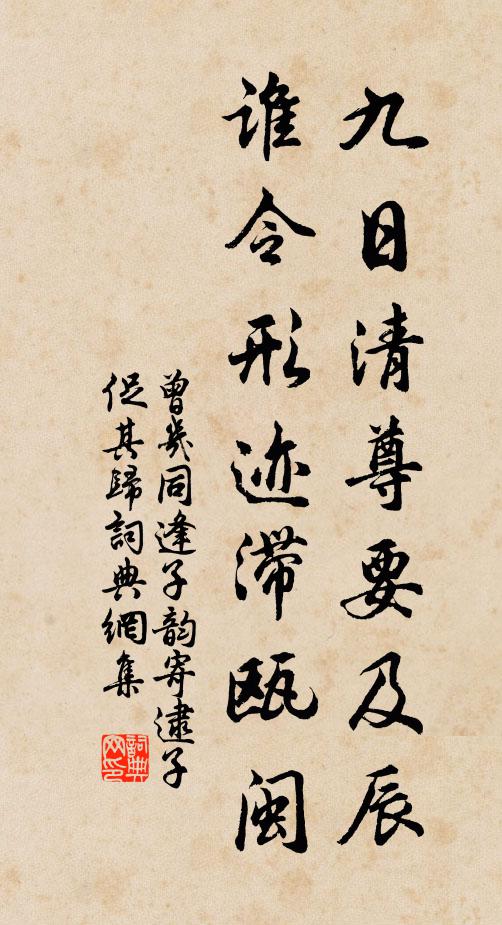 九日清尊要及辰
谁令形迹滞瓯闽
曾幾同逢子韵寄逮子
促其歸詞典網集
詞典网印